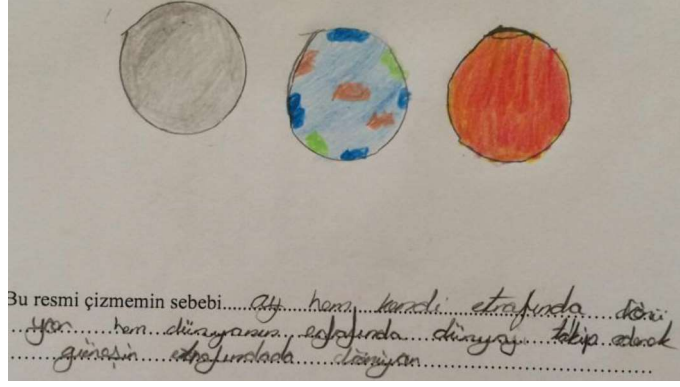 Bu resmi çizmemin sebebi..... ay hem kendi etrafında dönü
yor hem dünyanın etrafında dünyayı takip ederek
güneşin etrafındada dönüyor